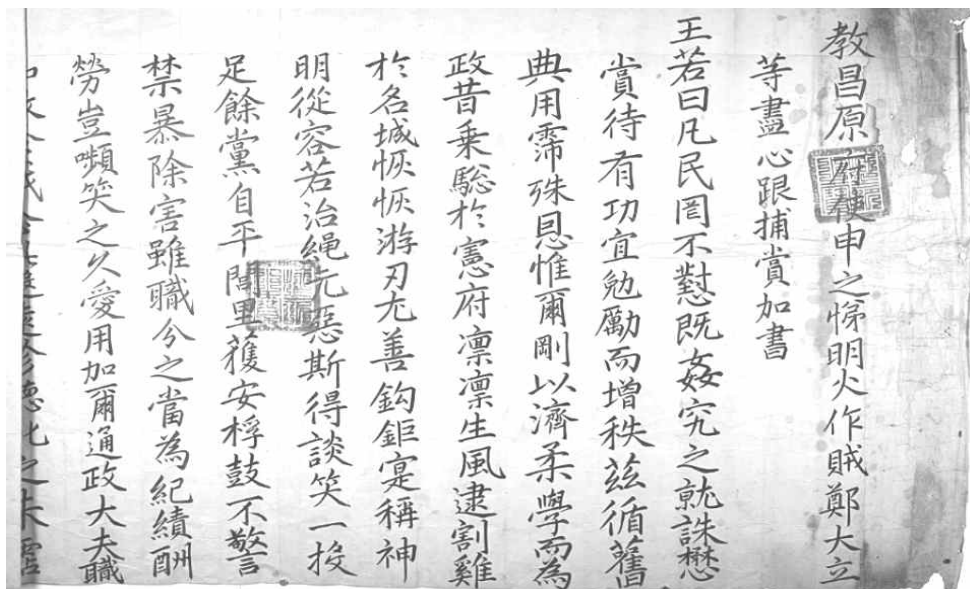 教昌原府使申之悌明火作賊鄭大立
等盡心跟捕賞加書
王若曰凡民罔不憝既姦究之就誅懋
賞待有功宜勉勵而增秩玆循舊
典用霈殊恩惟爾剛以濟柔學而為
政昔乘驄於憲府凛凛生風逮割雞
於名城恢恢游刃尤善鈎鉅寔稱神
明從容若治繩元惡斯得談笑一投
足餘黨自平閭里獲安桴鼓不警
禁暴除害雖職分之當為紀績酬
勞豈嚬笑之久愛用加爾通政大夫職